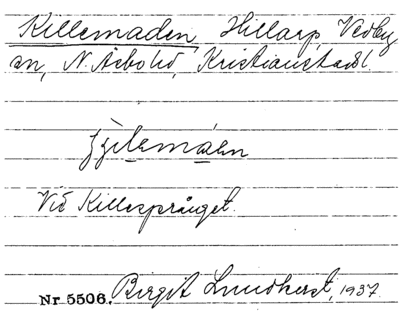 Killemaden, Hillarp, Vedby
sn, N. Åsbo hd, Kristianstadsl.
Vid Killesprånget.
Nr 5506. Birgit Lundherst, 1937